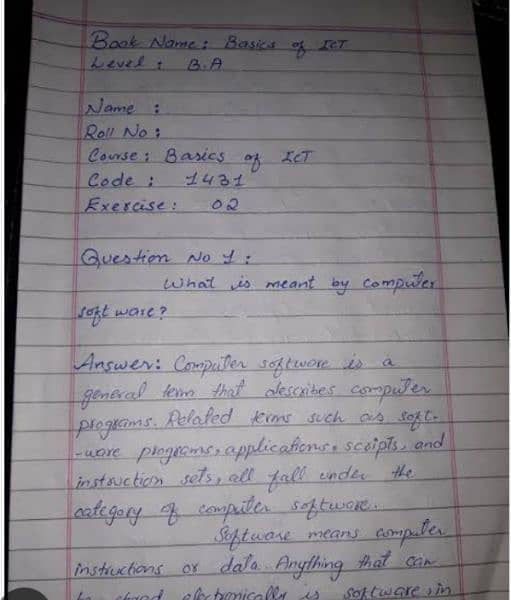 Book Name: Basics of ICT
Level: B.A
Name :
Roll No :
Course: Basics of ICT
Code : 1431
Exercise: 02
Question No 1:
What is meant by computer
soft ware?
Answer: Computer software is a
general term that describes computer
programs. Related terms such as soft-
-ware programs, applications, scripts, and
instruction sets, all fall under the
category of computer software.
Software means computer
instructions or data. Anything that can
be stored electronically is software, in